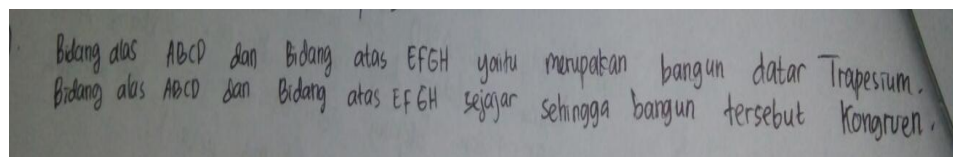 Bidang alas ABCD dan Bidang atas EFGH yaitu merupakan bangun datar Trapesium.
Bidang alas ABCD dan Bidang atas EFGH sejajar sehingga bangun tersebut Kongruen.